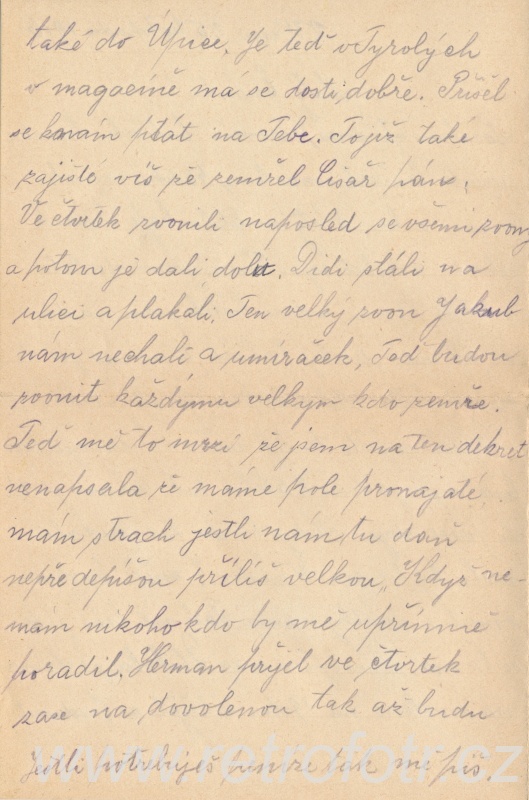 také do Úpice. Je teď v Tyrolých
v magacíně má se dosti dobře. Přišel
se k nám ptát na Tebe. To již také
zajisté víš že zemřel Císař pán.
Ve čtvrtek zvonili naposled se všemi zvony
a potom je dali dolu. Didi stáli na
ulici a plakali. Ten velký zvon Jakub
nám nechali a umíráček. Teď budou
zvonit každýmu velkym kdo zemře.
Teď mě to mrzí že jsem na ten dekret
nenapsala že máme pole pronajaté
mám strach jestli nám tu daň
nepředepíšou příliš velkou. Když ne-
mám nikoho kdo by mě upřímně
poradil. Herman přijel ve čtvrtek
zase na dovolenou tak až budu
Jestli potřebuješ peníze tak mě piš.
www.retrofotr.cz